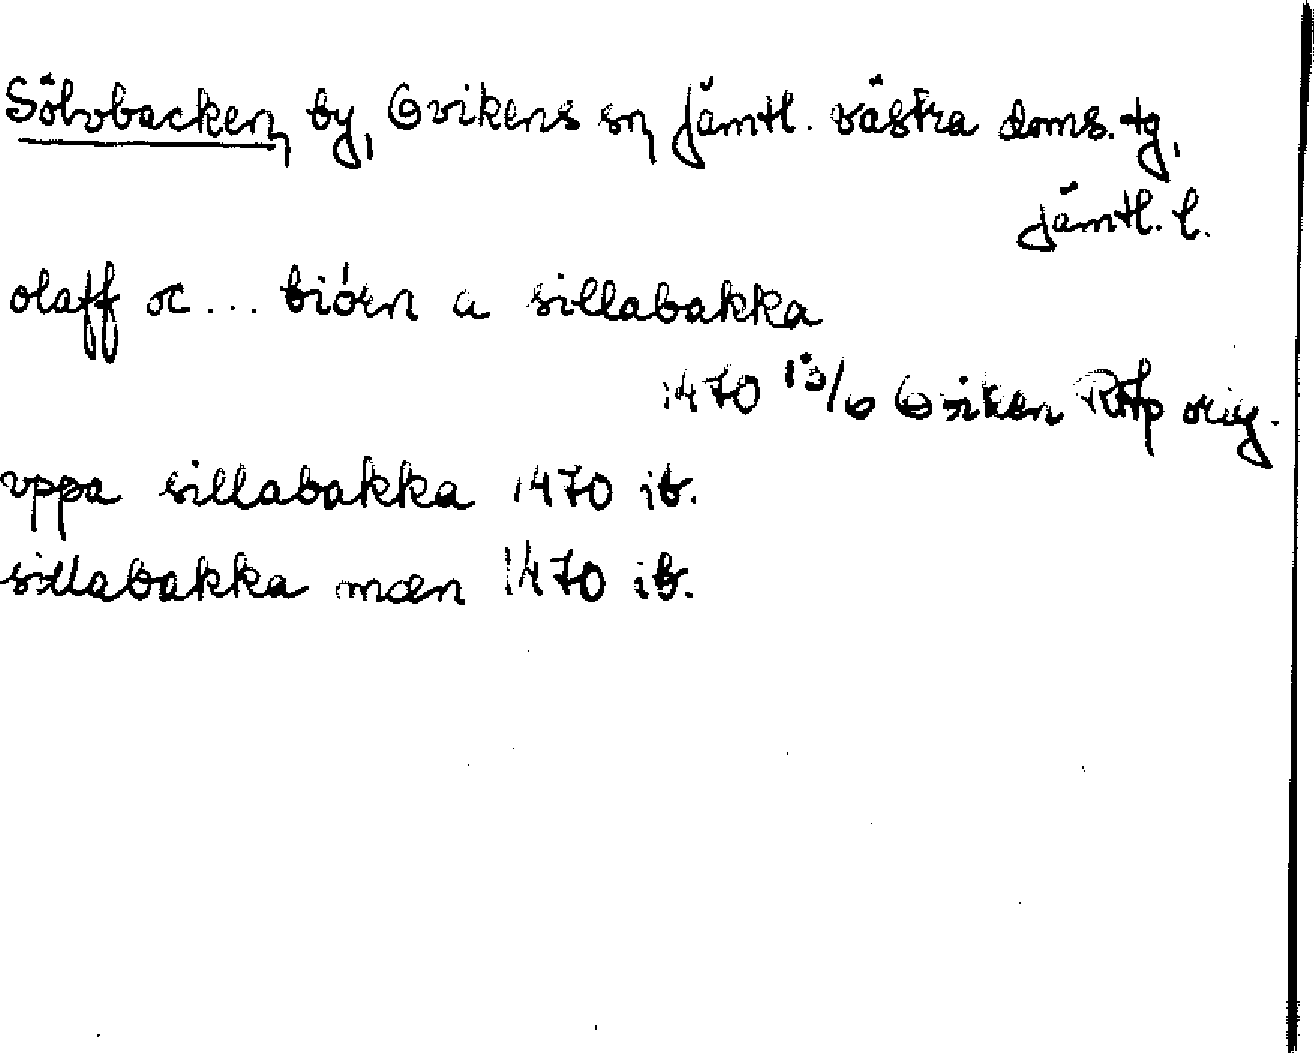 Sölvbacken by, Ovikens sn, Jämtl. västra doms. tg,
Jämtl. l.
olaff oc ... biórn a sillabakka
1470 13/6 Oviken RAp orig.
vppa sillabakka 1470 ib.
sillabakka mæn 1470 ib.